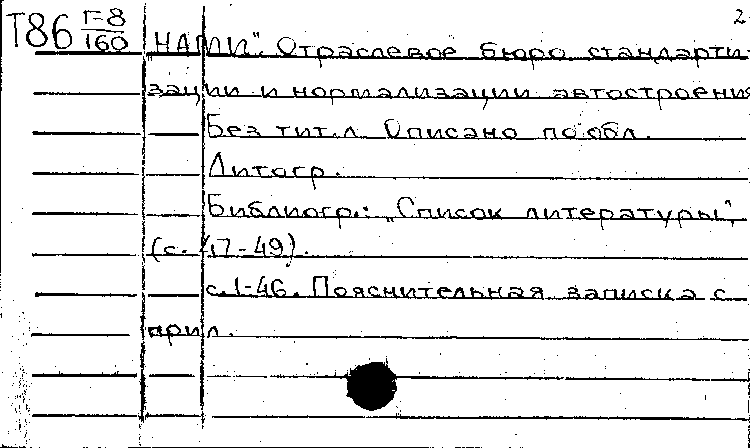 2
Т86 Г-8/160
НАМИ". Отраслевое бюро стандарти
зации и нормализации автостроения
Без тит.л. Описано по обл.
Литогр.
Библиогр.: „Список литературы",
(с. 47-49).
с.1-46. Пояснительная записка с
прил.